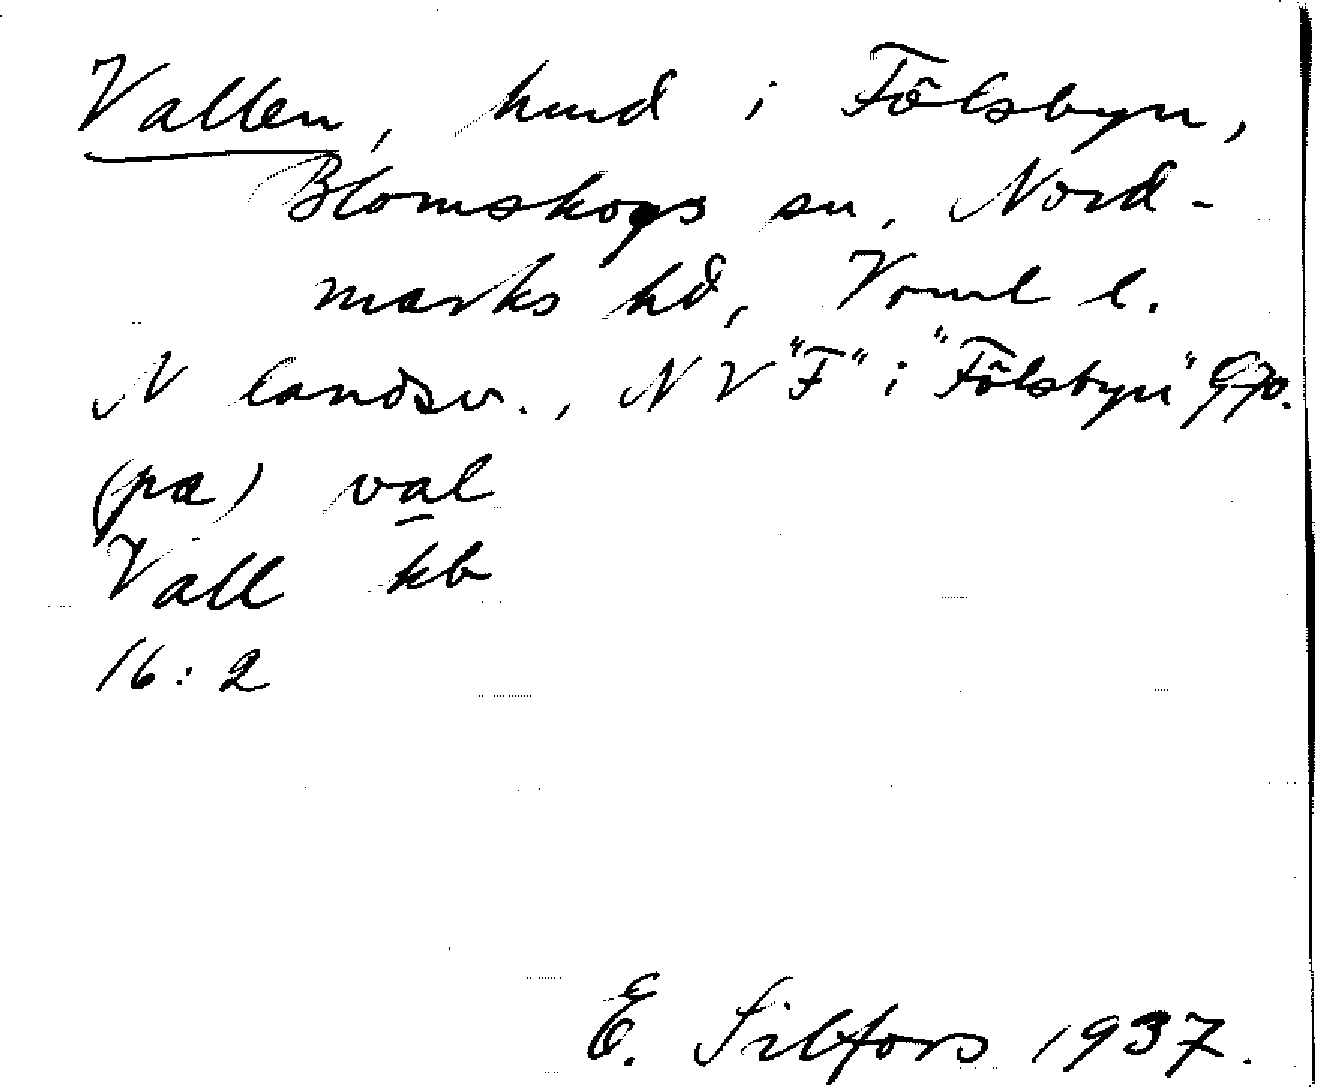 Vallen, hmd i Fölsbyn,
Blomskogs sn, Nord-
marks hd, Vrml l.
N landsv., N V "F" i "Fölsbyn" Gjo.
(pa) val
Vall kb
16:2
E. Silfors 1937.